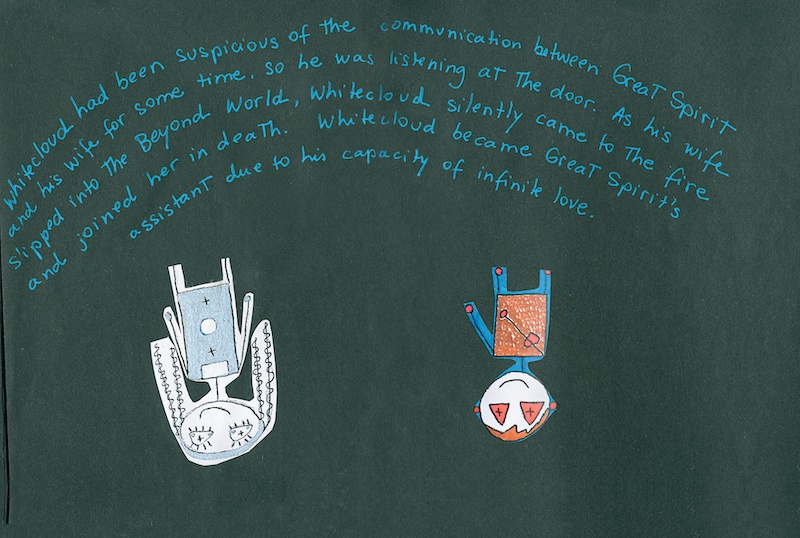 Whitecloud had been suspicious of the communication between Great Spirit
and his wife for some time, so he was listening at The door. As his wife
slipped into The Beyond World, Whitecloud silently came to The fire
and joined her in death. Whitecloud became Great Spirit's
assistant due to his capacity of infinite love.